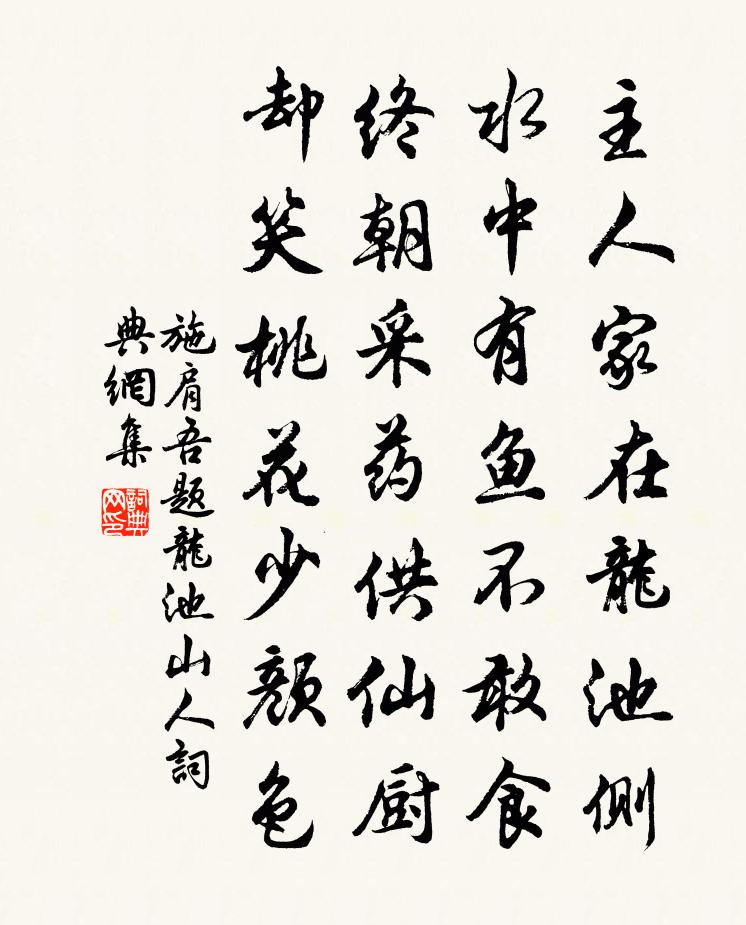 主人家在龍池側
水中有鱼不敢食
终朝采药供仙厨
却笑桃花少颜色
施肩吾题龍池山人詞
典網集
詞典
网印